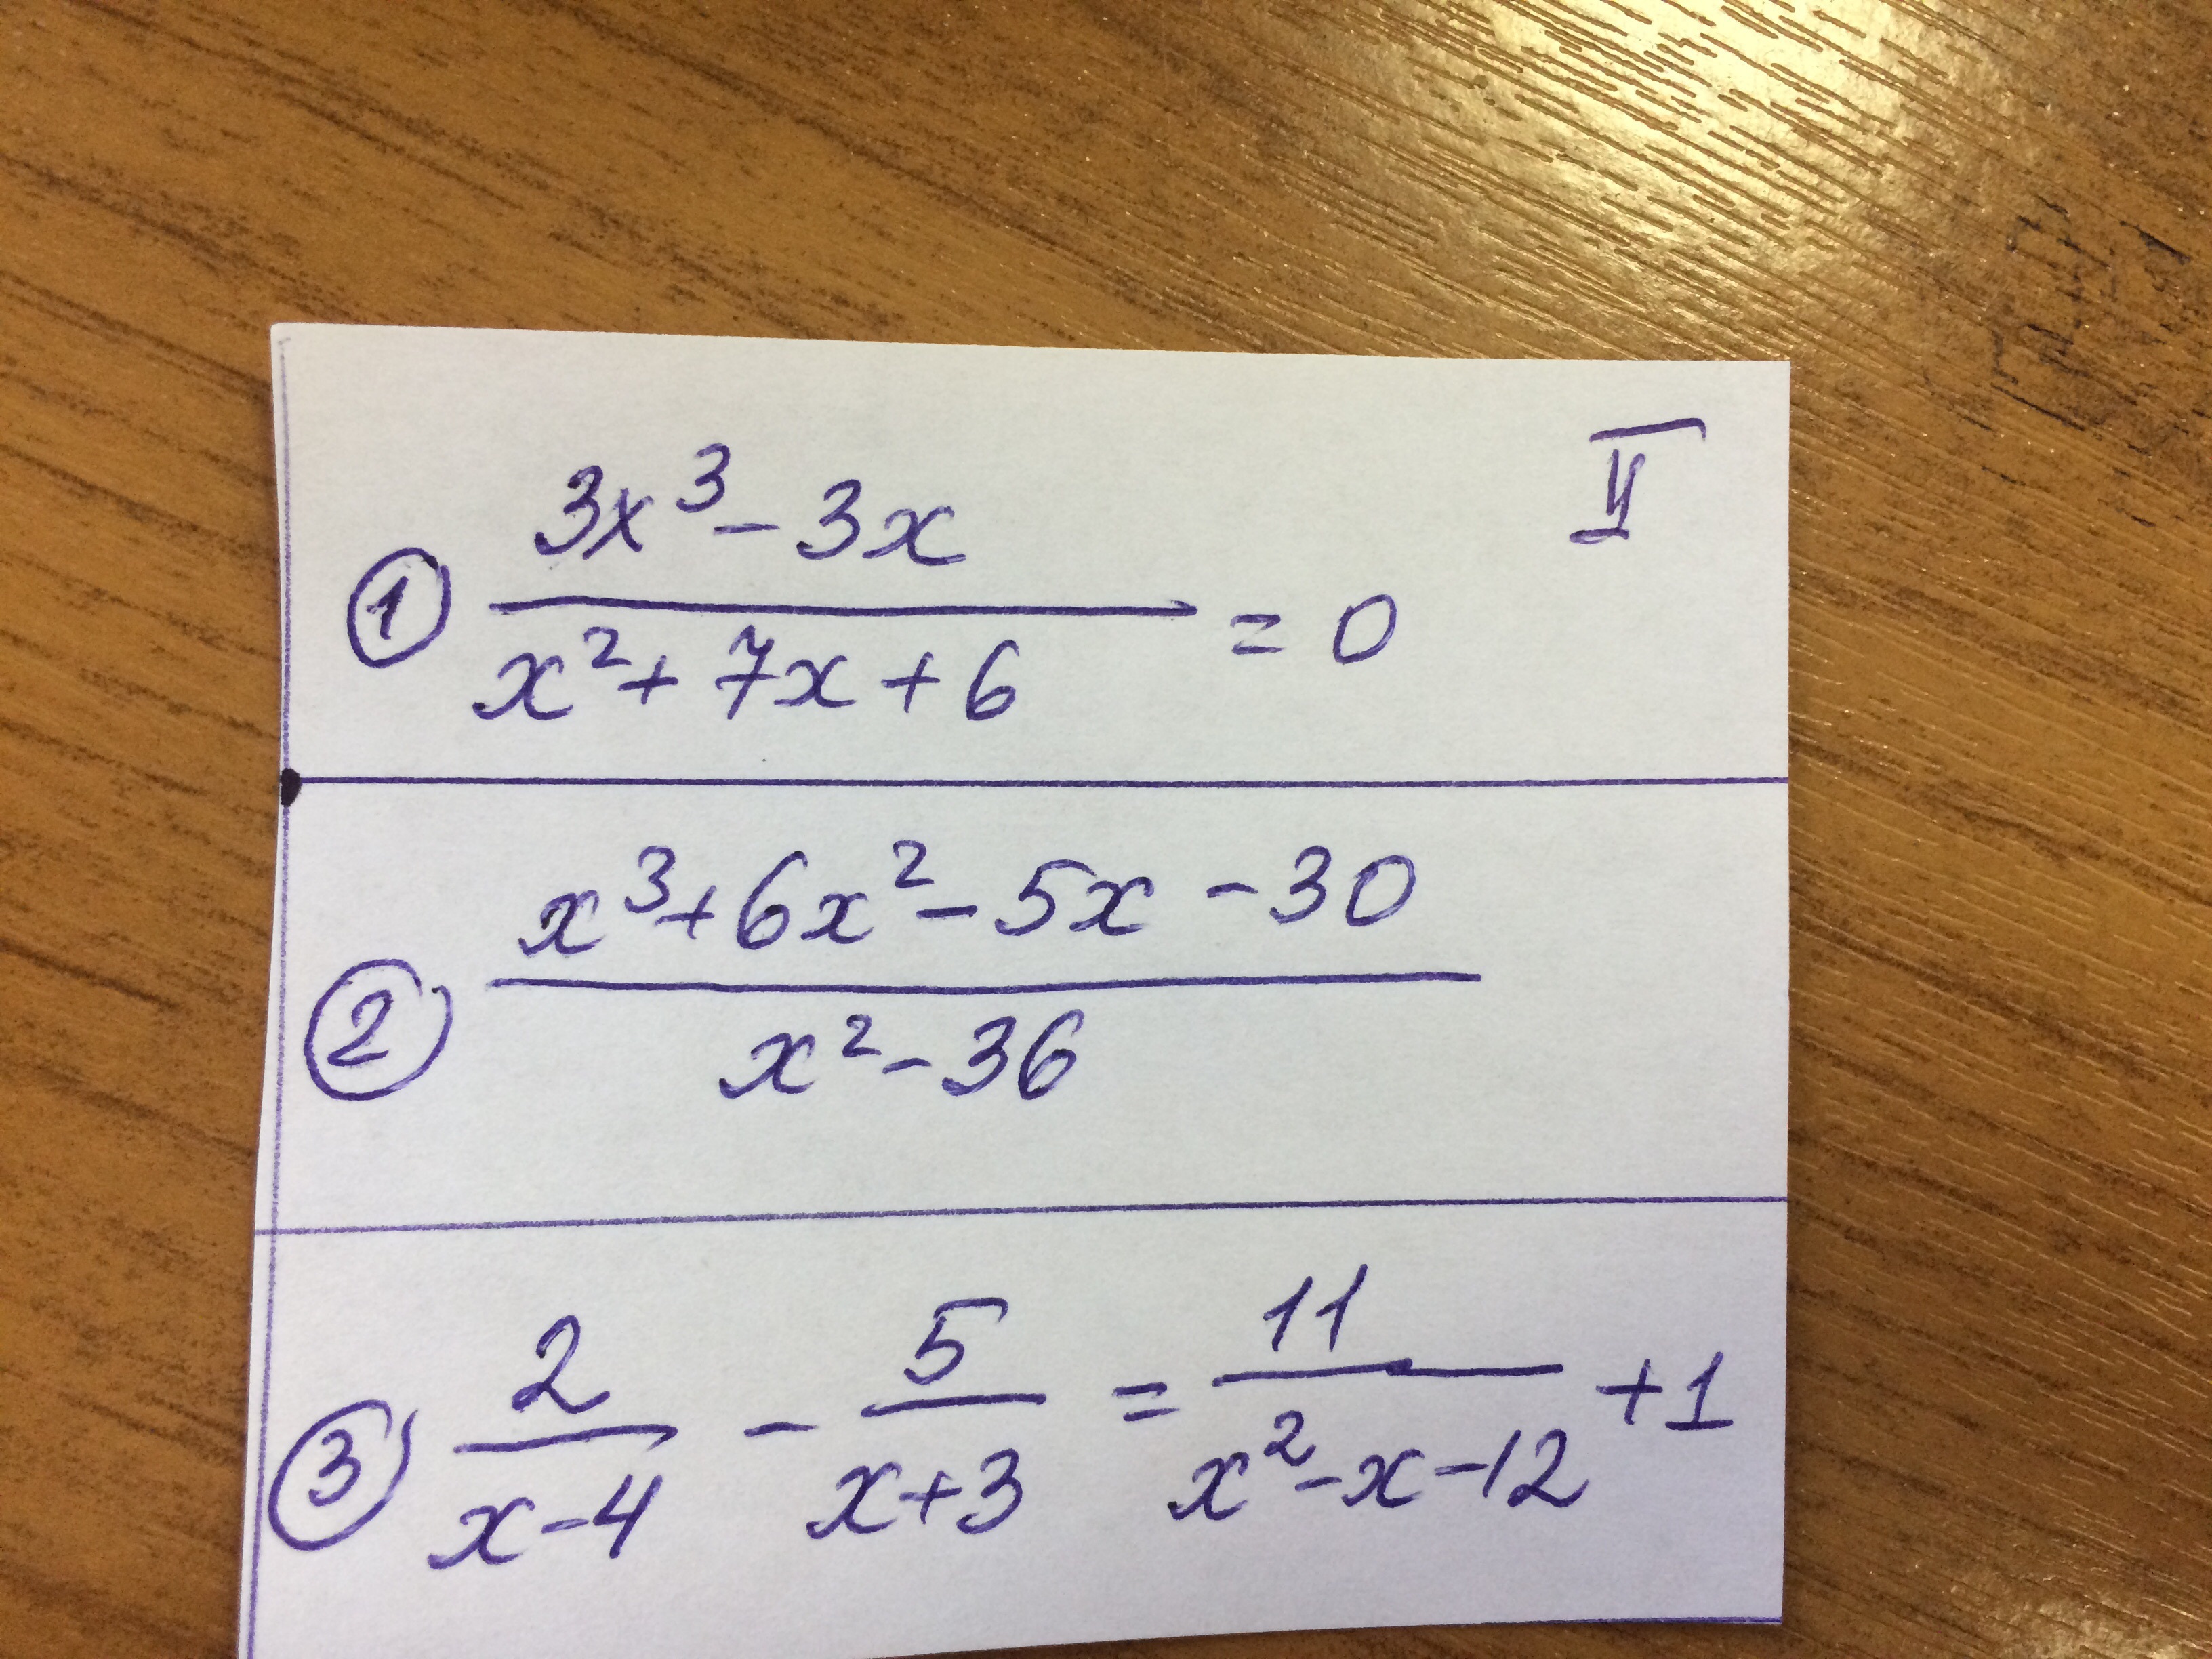 II
① (3x³ - 3x)/(x² + 7x + 6) = 0
② (x³ + 6x² - 5x - 30)/(x² - 36)
③ 2/(x-4) - 5/(x+3) = 11/(x² - x - 12) + 1